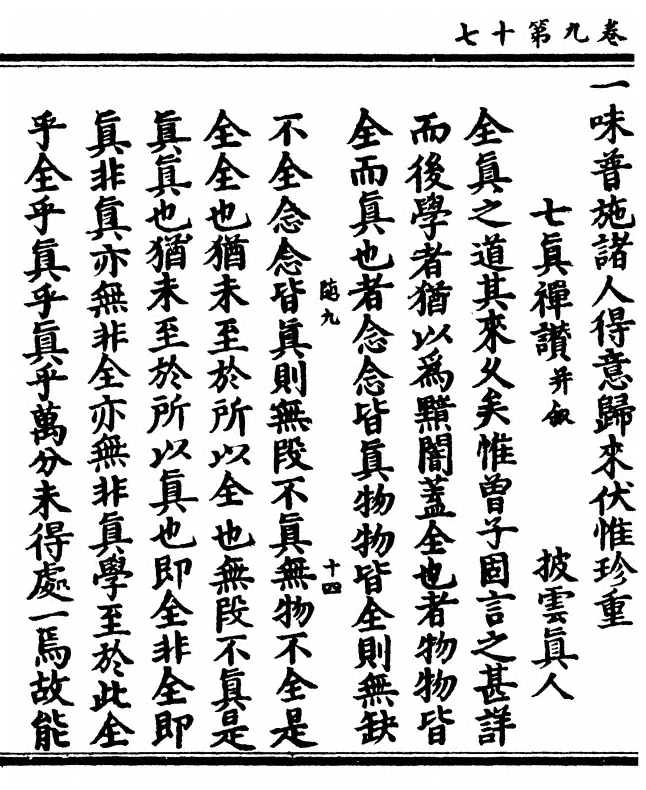 卷九第十七
一味普施諸人得意歸來伏惟珍重
七眞禪讚并敘 披雲眞人
全眞之道其來久矣惟曾子固言之甚詳
而後學者猶以爲黮闇蓋全也者物物皆
全而眞也者念念皆眞物物皆全則無缺
隨九 十四
不全念念皆眞則無段不眞無物不全是
全全也猶未至於所以全也無段不眞是
眞眞也猶未至於所以眞也即全非全即
眞非眞亦無非全亦無非眞學至於此全
乎全乎眞乎眞乎萬分未得處一焉故能